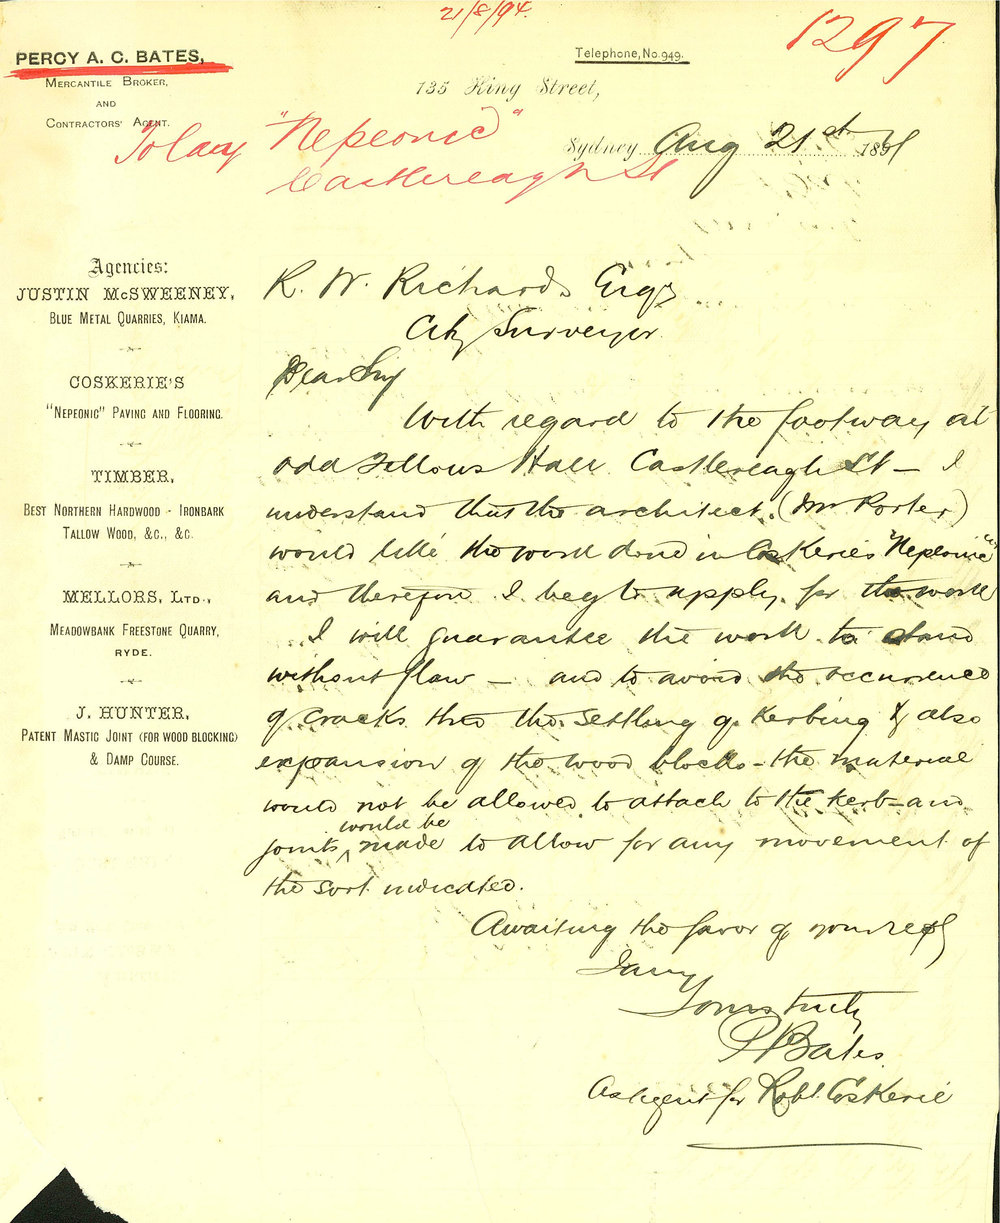 21/8/94.
1297
PERCY A. C. BATES,
MERCANTILE BROKER,
AND
CONTRACTORS' AGENT.
Telephone, No. 949.
135 King Street,
Sydney Aug 21st 1894
To lay "Nepeonic"
Castlereagh St
Agencies:
JUSTIN McSWEENEY,
BLUE METAL QUARRIES, KIAMA.
COSKERIE'S
"NEPEONIC" PAVING AND FLOORING.
TIMBER,
BEST NORTHERN HARDWOOD - IRONBARK
TALLOW WOOD, &C., &C.
MELLORS, LTD.,
MEADOWBANK FREESTONE QUARRY,
RYDE.
J. HUNTER,
PATENT MASTIC JOINT (FOR WOOD BLOCKING)
& DAMP COURSE.
R. W. Richards Esqr
City Surveyor
Dear Sir
With regard to the footway at
Odd Fellows Hall Castlereagh St — I
understand that the architect (Mr Porter)
would like the work done in Coskeries "Nepeonic"
and therefore I beg to apply for the work
I will guarantee the work to stand
without flaw — and to avoid the occurrence
of cracks thro the settling of kerbing & also
expansion of the wood blocks - the material
would not be allowed to attach to the kerb - and
joints would be made to allow for any movement of
the sort indicated.
Awaiting the favor of your reply
I am
Yours truly
P Bates
As Agent for Robt. Coskerie